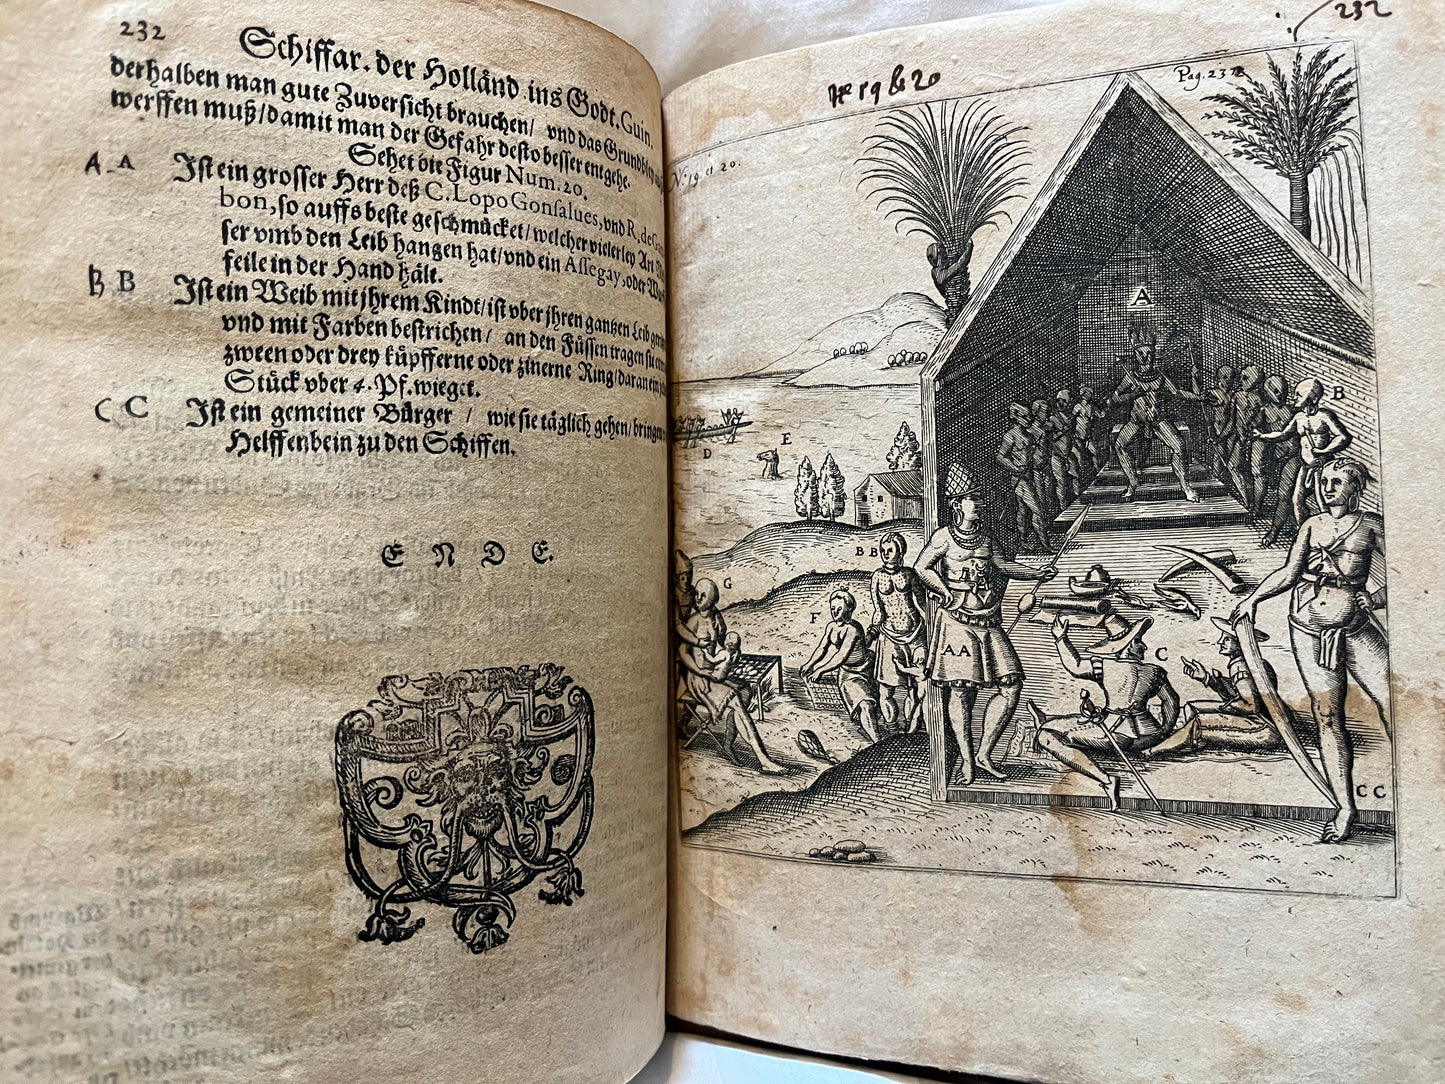 232
Schiffar. der Holländ ins Godt. Guin.
derhalben man gute Zuversicht brauchen/ vnd das Grundbley
werffen muß/damit man der Gefahr desto besser entgehe.
Sehet die Figur Num. 20.
A A Ist ein grosser Herr deß C. Lopo Gonsalues, vnd R. de
bon, so auffs beste geschmücket/welcher vielerley Art
ser vmb den Leib hangen hat/vnd ein Assegay, oder
feile in der Hand hält.
B B Ist ein Weib mit jhrem Kindt/ist vber jhren gantzen Leib
vnd mit Farben bestrichen/ an den Füssen tragen sie
zween oder drey küpfferne oder zinerne Ring/daran ein
Stück vber 4. Pf. wieget.
C C Ist ein gemeiner Bürger / wie sie täglich gehen/bringen
Helffenbein zu den Schiffen.
E N D E.
232
Nº 19 & 20
Pag. 232
Nº. 19 et 20.
A
B
D
E
B B
G
F
A A
C
C C